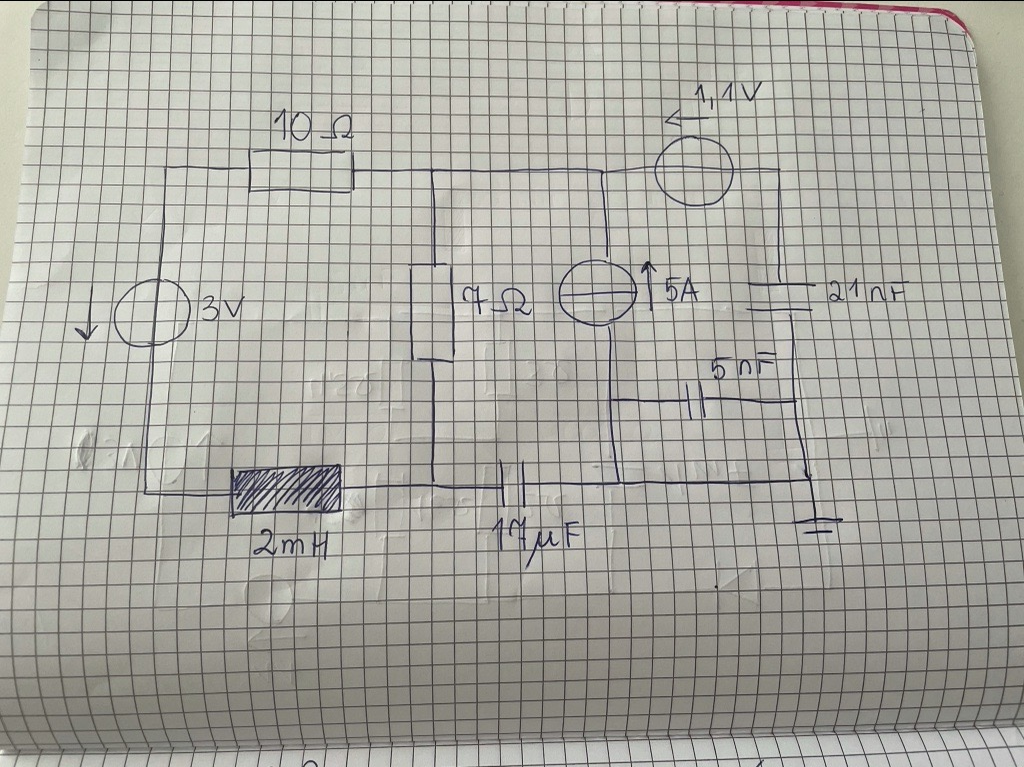 1,1V
10 Ω
3V
7 Ω
5A
21nF
5 nF
2mH
17µF